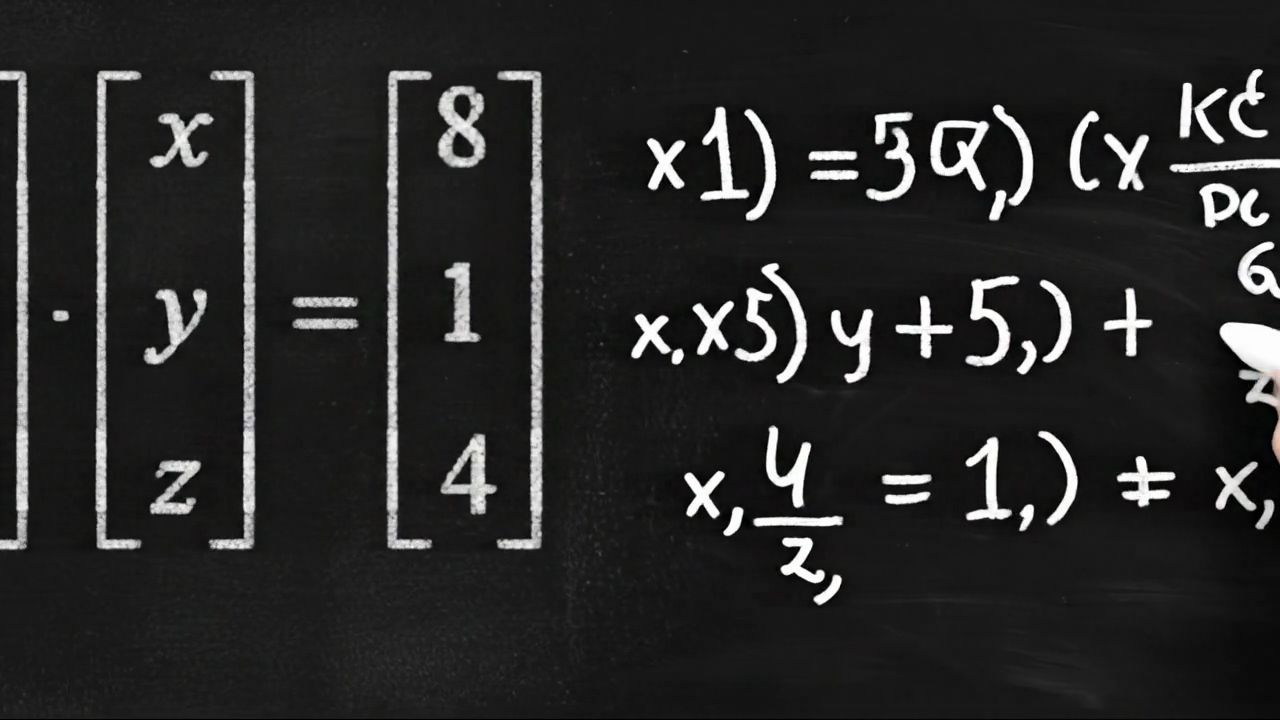 ] · [x y z] = [8 1 4]
x1) = 3Q,) (x
x,x5) y + 5,) +
x, 4/z, = 1,) ‡ x,